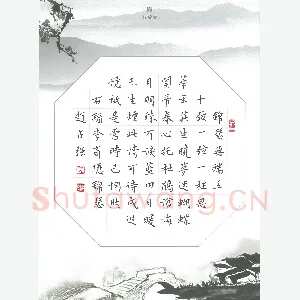 錦瑟無端五
十弦一弦一柱思
華年莊生曉夢迷蝴蝶
望帝春心托杜鵑滄海
月明珠有淚藍田日暖
玉生煙此情可待成追
憶只是當時已惘然
右錄李商隱錦瑟
Shufawang.CN